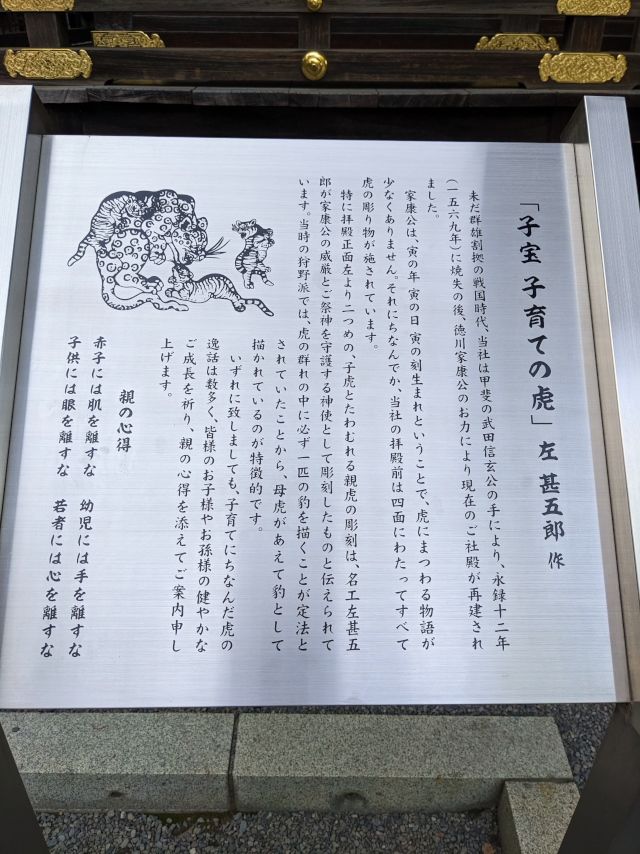 「子宝 子育ての虎」 左 甚五郎 作
未だ群雄割拠の戦国時代、当社は甲斐の武田信玄公の手により、永録十二年
(一五六九年)に焼失の後、徳川家康公のお力により現在のご社殿が再建され
ました。
家康公は、寅の年 寅の日 寅の刻生まれということで、虎にまつわる物語が
少なくありません。それにちなんでか、当社の拝殿前は四面にわたってすべて
虎の彫り物が施されています。
特に拝殿正面左より二つめの、子虎とたわむれる親虎の彫刻は、名工左甚五
郎が家康公の威厳とご祭神を守護する神使として彫刻したものと伝えられて
います。当時の狩野派では、虎の群れの中に必ず一匹の豹を描くことが定法と
されていたことから、母虎があえて豹として
描かれているのが特徴的です。
いずれに致しましても、子育てにちなんだ虎の
逸話は数多く、皆様のお子様やお孫様の健やかな
ご成長を祈り、親の心得を添えてご案内申し
上げます。
親の心得
赤子には肌を離すな 幼児には手を離すな
子供には眼を離すな 若者には心を離すな